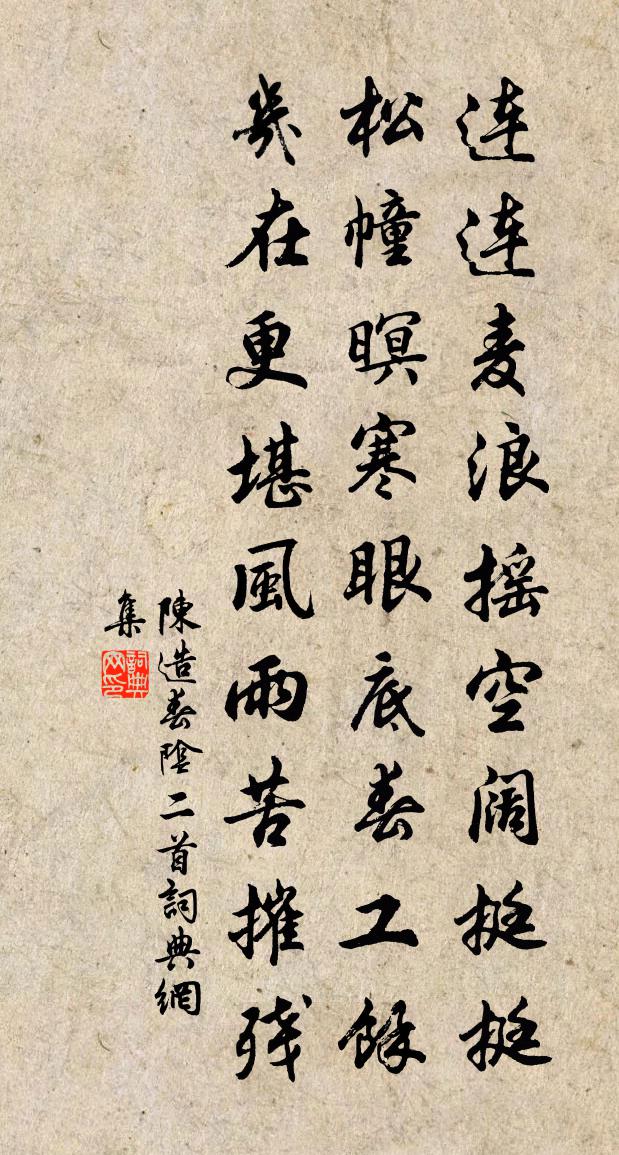 连连麦浪摇空阔挺挺
松幢暝寒眼底春工餘
几在更堪風雨苦摧残
陳造春陰二首詞典網
集
詞典网印